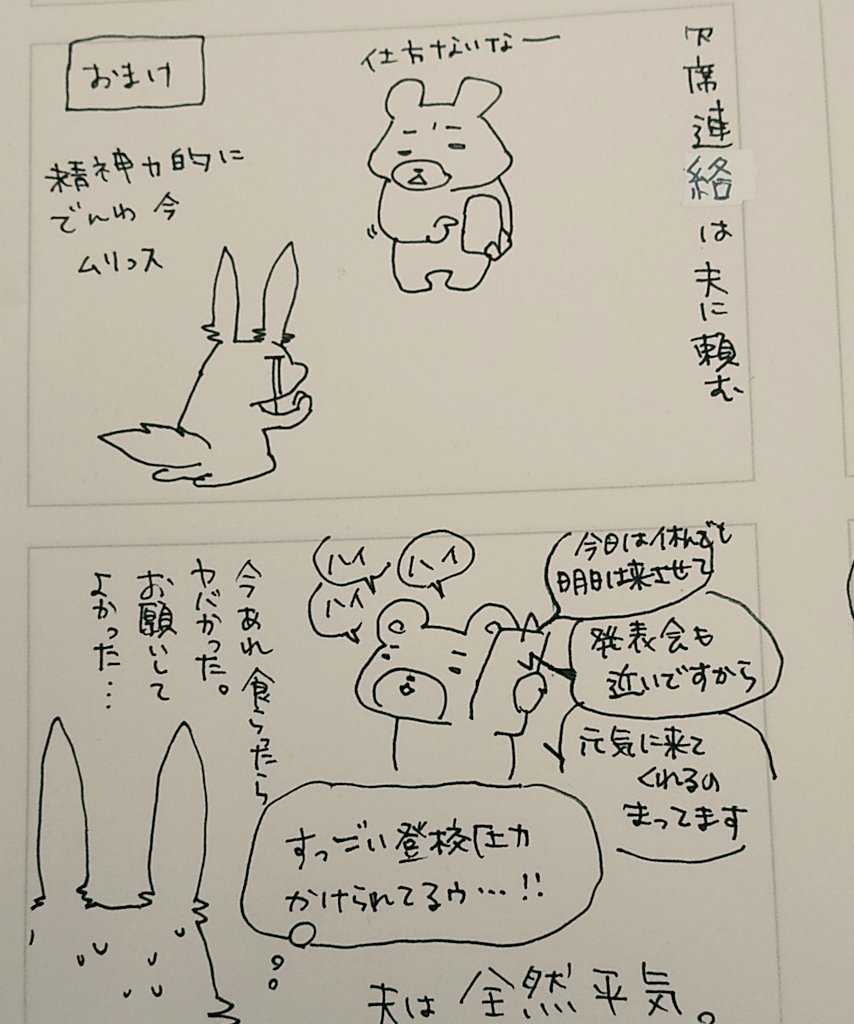 欠席連絡は夫に頼む
仕方ないなー
おまけ
精神力的に
でんわ 今
ムリっス
今日は休んでも
明日は来させて
発表会も
近いですから
元気に来て
くれるの
まってます
ハイ
ハイ
ハイ
すっごい登校圧力
かけられてるゥ…!!
今あれ食らったら
ヤバかった。
お願いして
よかった…
夫は全然平気。